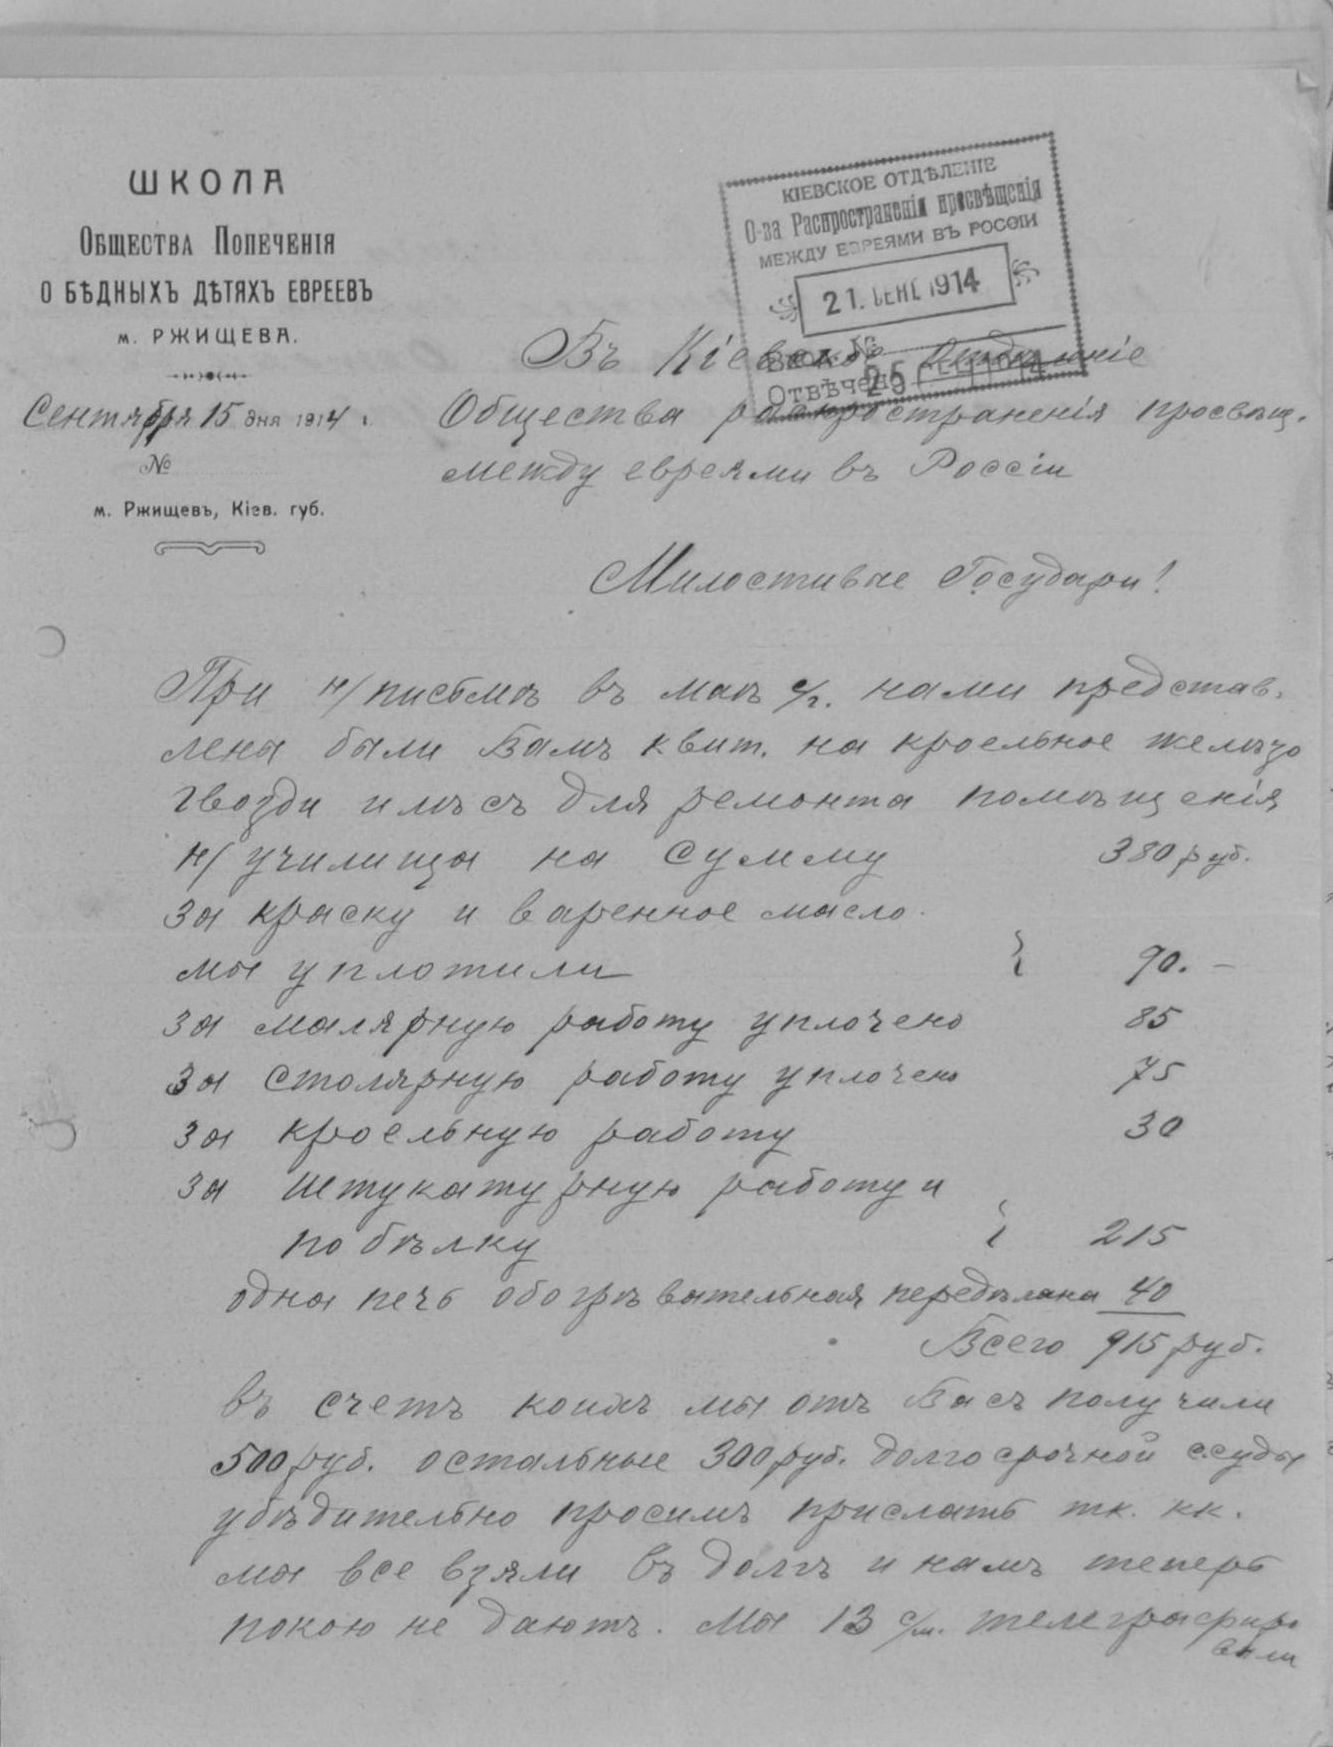 ШКОЛА
ОБЩЕСТВА ПОПЕЧЕНІЯ
О БѢДНЫХЪ ДѢТЯХЪ ЕВРЕЕВЪ
м. РЖИЩЕВА.
Сентября 15 дня 1914 г.
№
м. Ржищевъ, Кіев. губ.
КІЕВСКОЕ ОТДѢЛЕНІЕ
О-ва Распространенія просвѣщенія
МЕЖДУ ЕВРЕЯМИ ВЪ РОССІИ
21. СЕН. 1914
Вход. №
Отвѣчено 25 1914
Въ Кіевское Отдѣленіе
Общества распространенія просвѣщ.
между евреями въ Россіи
Милостивые Государи!
При н/письмѣ въ маѣ с/г. нами представ-
лены были Вамъ квит. на кроельное желѣзо
гвозди и лѣсъ для ремонта помѣщенія
н/училища на сумму 380 руб.
за краску и варенное масло
мы уплотили 90. –
за малярную работу уплочено 85
за столярную работу уплочено 75
за кроельную работу 30
за штукатурную работу и
побѣлку 215
одна печь обогрѣвательная передѣлана 40
Всего 915 руб.
въ счетъ коихъ мы отъ Васъ получили
500 руб. остальные 300 руб. долгосрочной ссуды
убѣдительно просимъ прислать тк. кк.
мы все взяли въ долгъ и намъ теперь
покою не даютъ. Мы 13 с/м. телеграфиро
вали